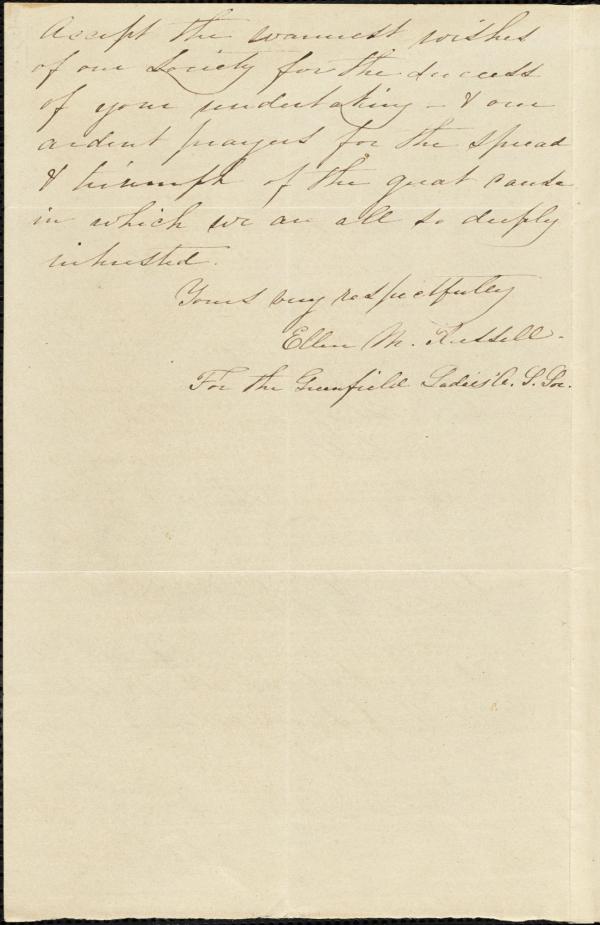 Accept the warmest wishes
of our Society for the success
of your undertaking - & our
ardent prayers for the spread
& triumph of the great cause
in which we are all so deeply
interested.
Yours very respectfully
Ellen M. Russell.
For the Greenfield Ladies' A. S. Soc.